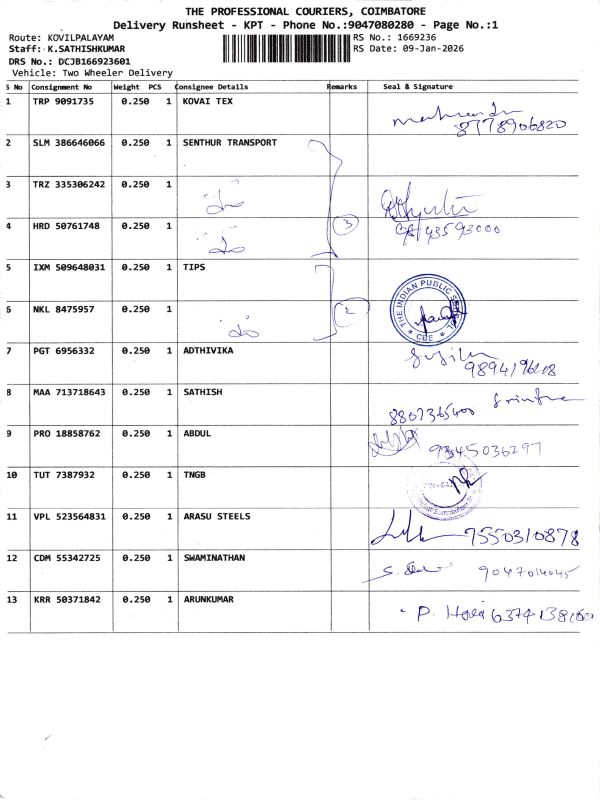 THE PROFESSIONAL COURIERS, COIMBATORE
Delivery Runsheet - KPT - Phone No.:9047080280 - Page No.:1
Route: KOVILPALAYAM RS No.: 1669236
Staff: K.SATHISHKUMAR RS Date: 09-Jan-2026
DRS No.: DCJB166923601
Vehicle: Two Wheeler Delivery
S No Consignment No Weight PCS Consignee Details Remarks Seal & Signature
1 TRP 9091735 0.250 1 KOVAI TEX
8778906820
2 SLM 386646066 0.250 1 SENTHUR TRANSPORT
3 TRZ 335306242 0.250 1
4 HRD 50761748 0.250 1 3
5 IXM 509648031 0.250 1 TIPS
THE INDIAN PUBLIC
CBE
6 NKL 8475957 0.250 1 2
7 PGT 6956332 0.250 1 ADTHIVIKA
8 MAA 713718643 0.250 1 SATHISH
8807365400
9 PRO 18858762 0.250 1 ABDUL
9345036297
10 TUT 7387932 0.250 1 TNGB
11 VPL 523564831 0.250 1 ARASU STEELS
7550310878
12 CDM 55342725 0.250 1 SWAMINATHAN
9047014045
13 KRR 50371842 0.250 1 ARUNKUMAR
P.